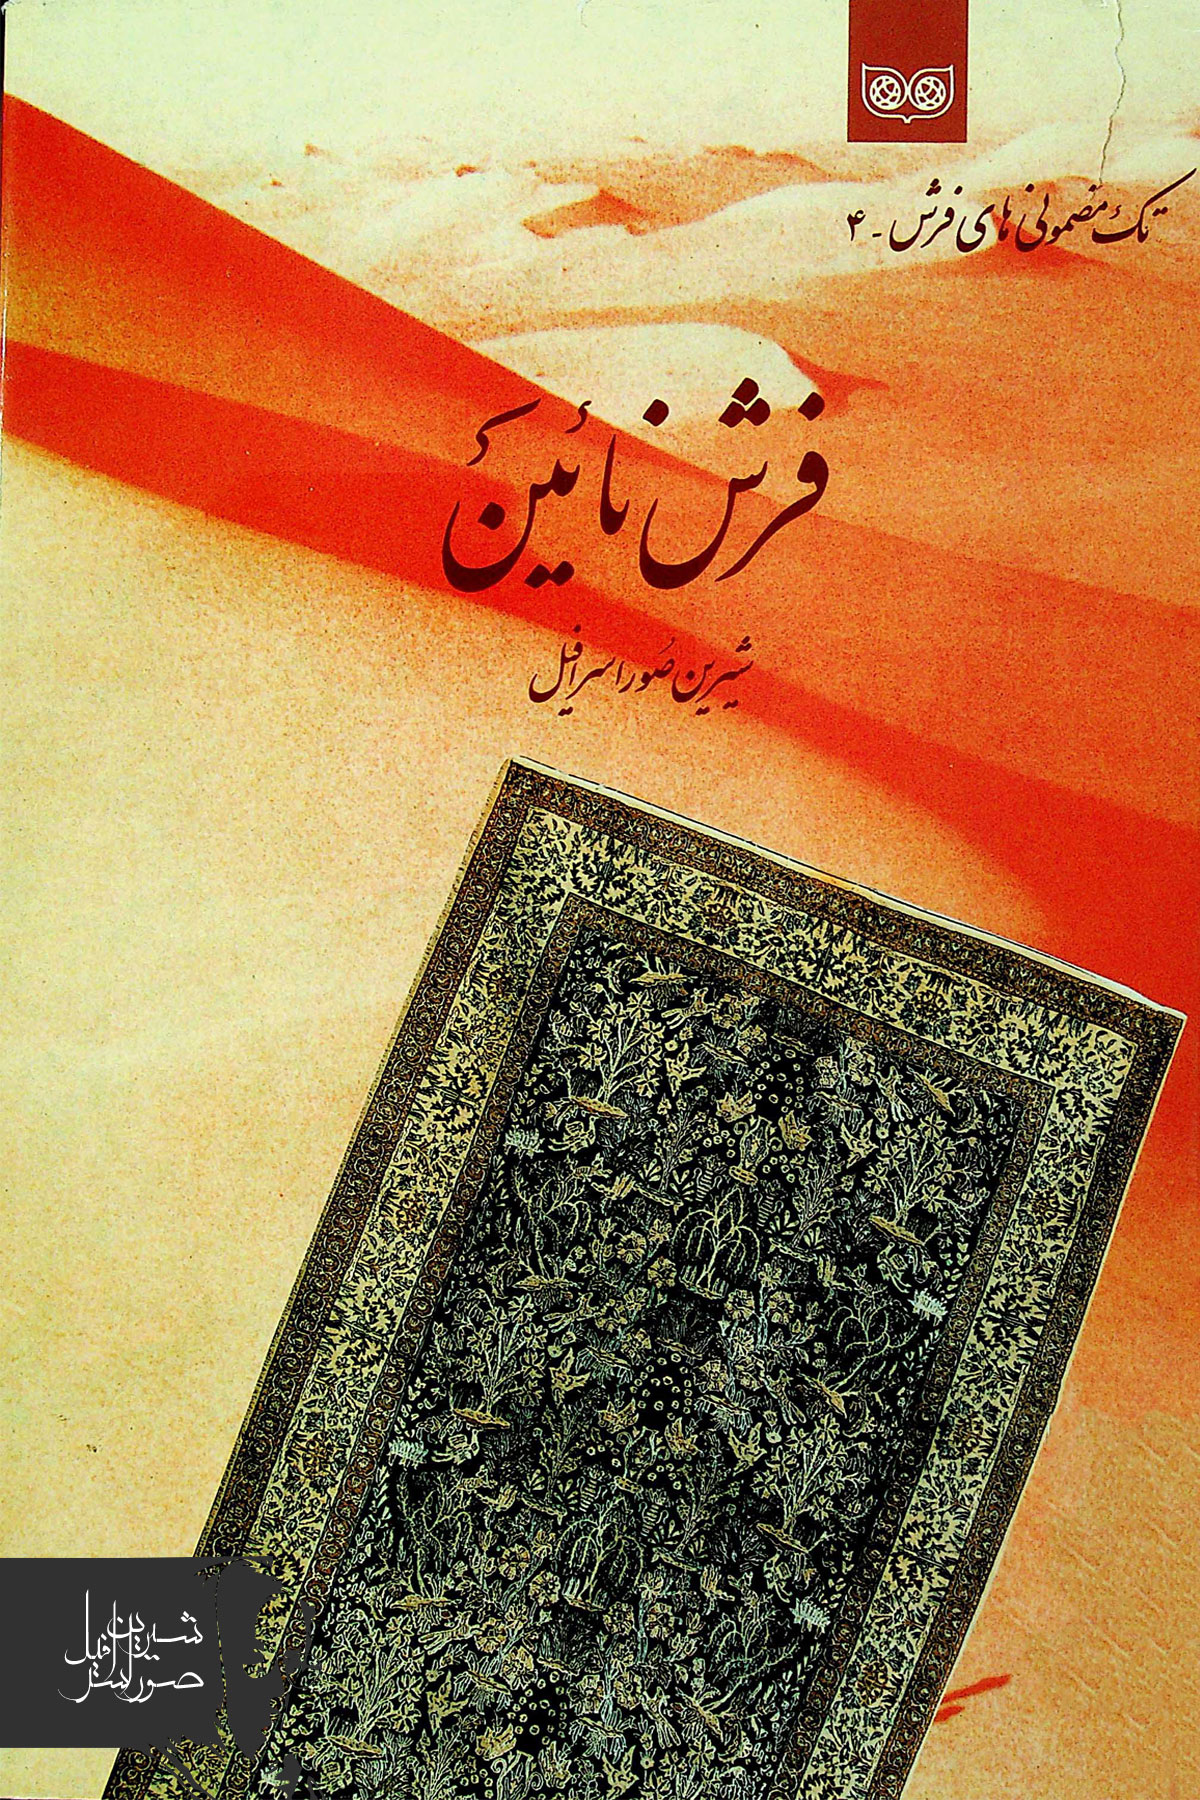 تک مضمونی های فرش - ۴
فرش نائین
شیرین صُوراسرافیل
شیرین
صوراسرافیل